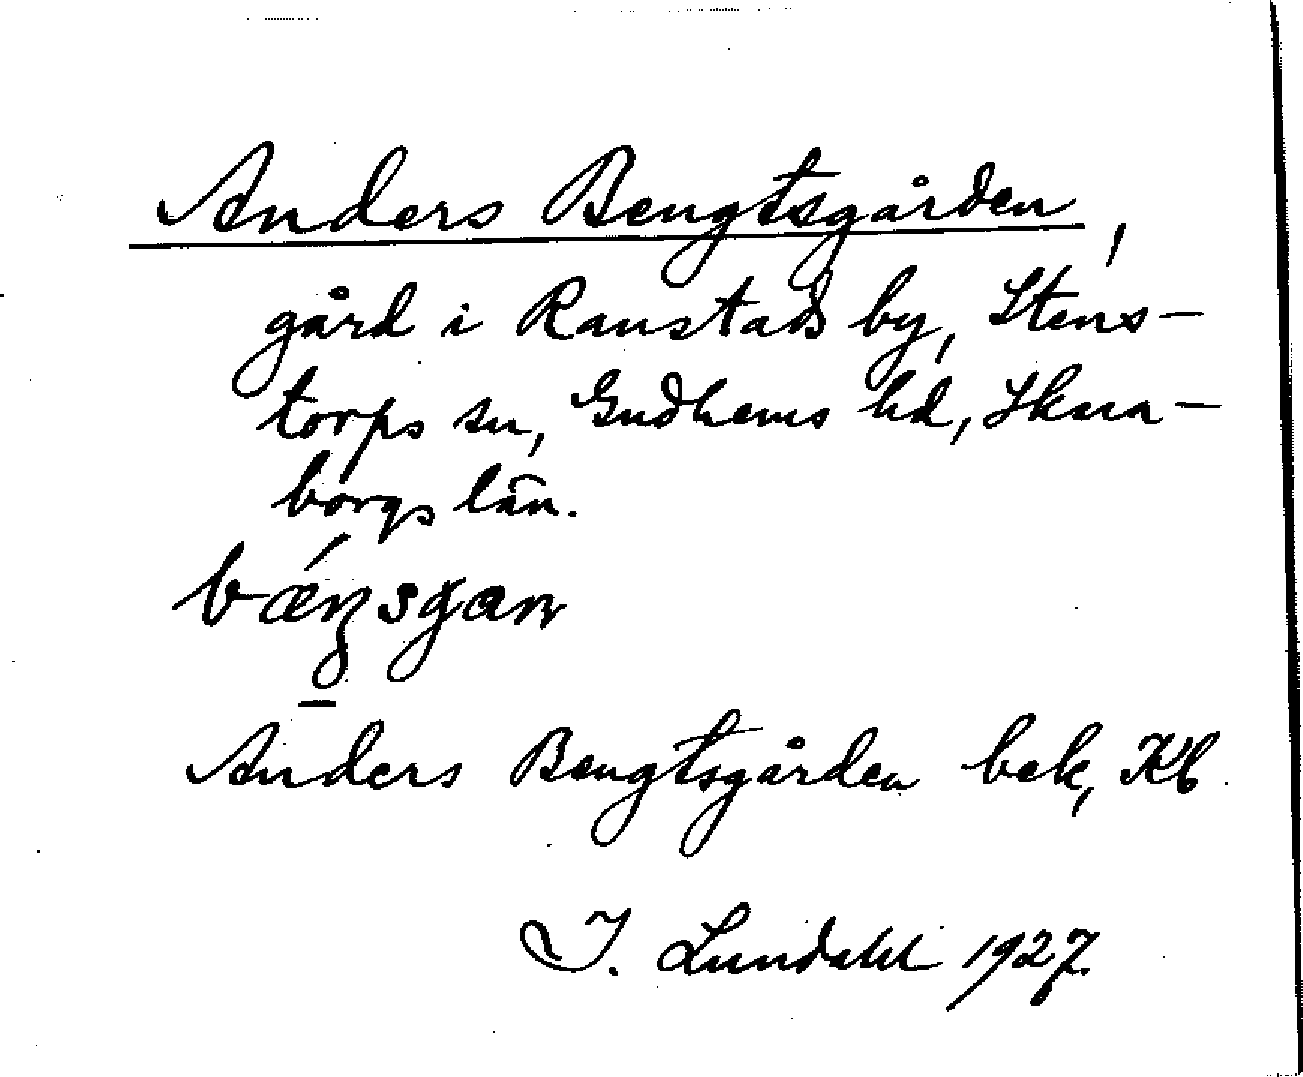 Anders Bengtsgården,
gård i Ranstads by, Stens-
torps sn, Gudhems hd, Skara-
borgs län.
Anders Bengtsgården bek, Kb
I. Lundahl 1927.